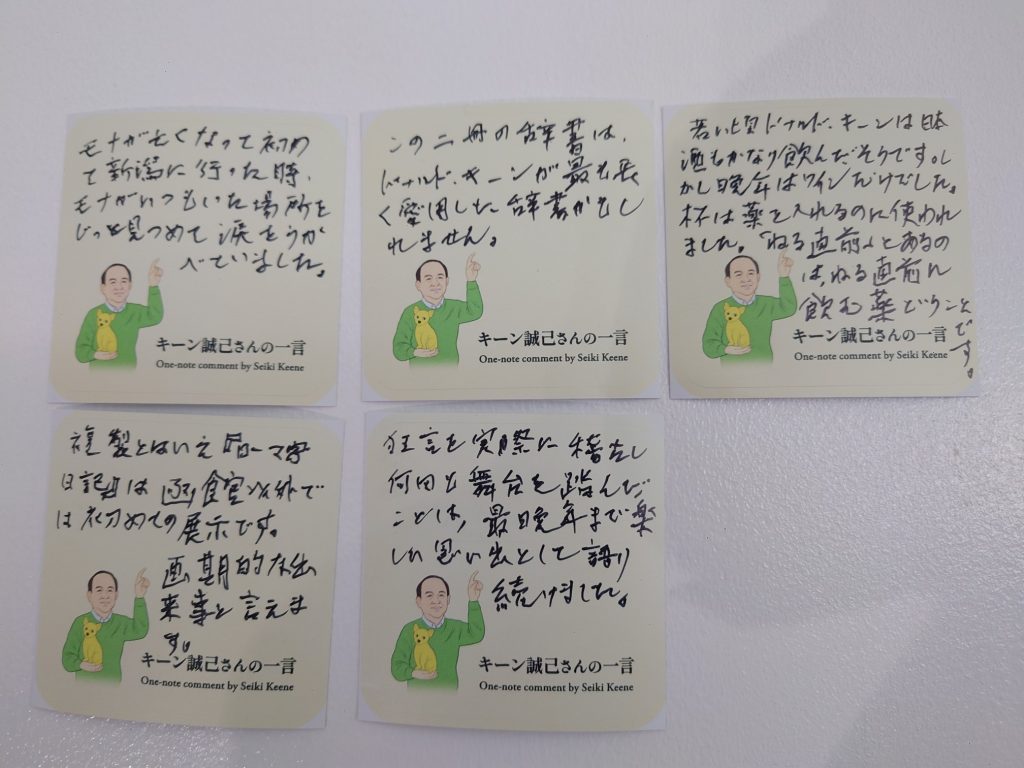 モナが亡くなって初め
て新潟に行った時、
モナがいつもいた場所を
じっと見つめて涙をうか
べていました。
キーン誠己さんの一言
One-note comment by Seiki Keene
この二冊の辞書は、
ドナルド・キーンが最も長
く愛用した辞書かもし
れません。
キーン誠己さんの一言
One-note comment by Seiki Keene
若い頃ドナルド・キーンは日本
酒もかなり飲んだそうです。し
かし晩年はワインだけでした。
杯は薬を入れるのに使われ
ました。「ねる直前」とあるの
は、ねる直前に
飲む薬ということ
です。
キーン誠己さんの一言
One-note comment by Seiki Keene
複製とはいえ『ローマ字
日記』は函館以外で
は初めての展示です。
画期的な出
来事と言えま
す。
キーン誠己さんの一言
One-note comment by Seiki Keene
狂言を実際に稽古し
何回も舞台を踏んだ
ことは、最晩年まで楽
しい思い出として語り
続けました。
キーン誠己さんの一言
One-note comment by Seiki Keene